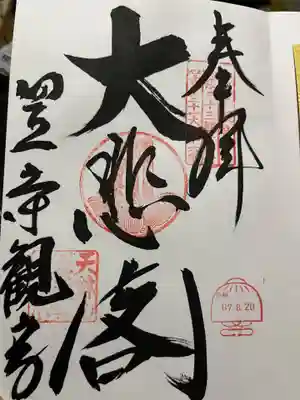 奉拝
大悲閣
笠寺観音
07.8.20